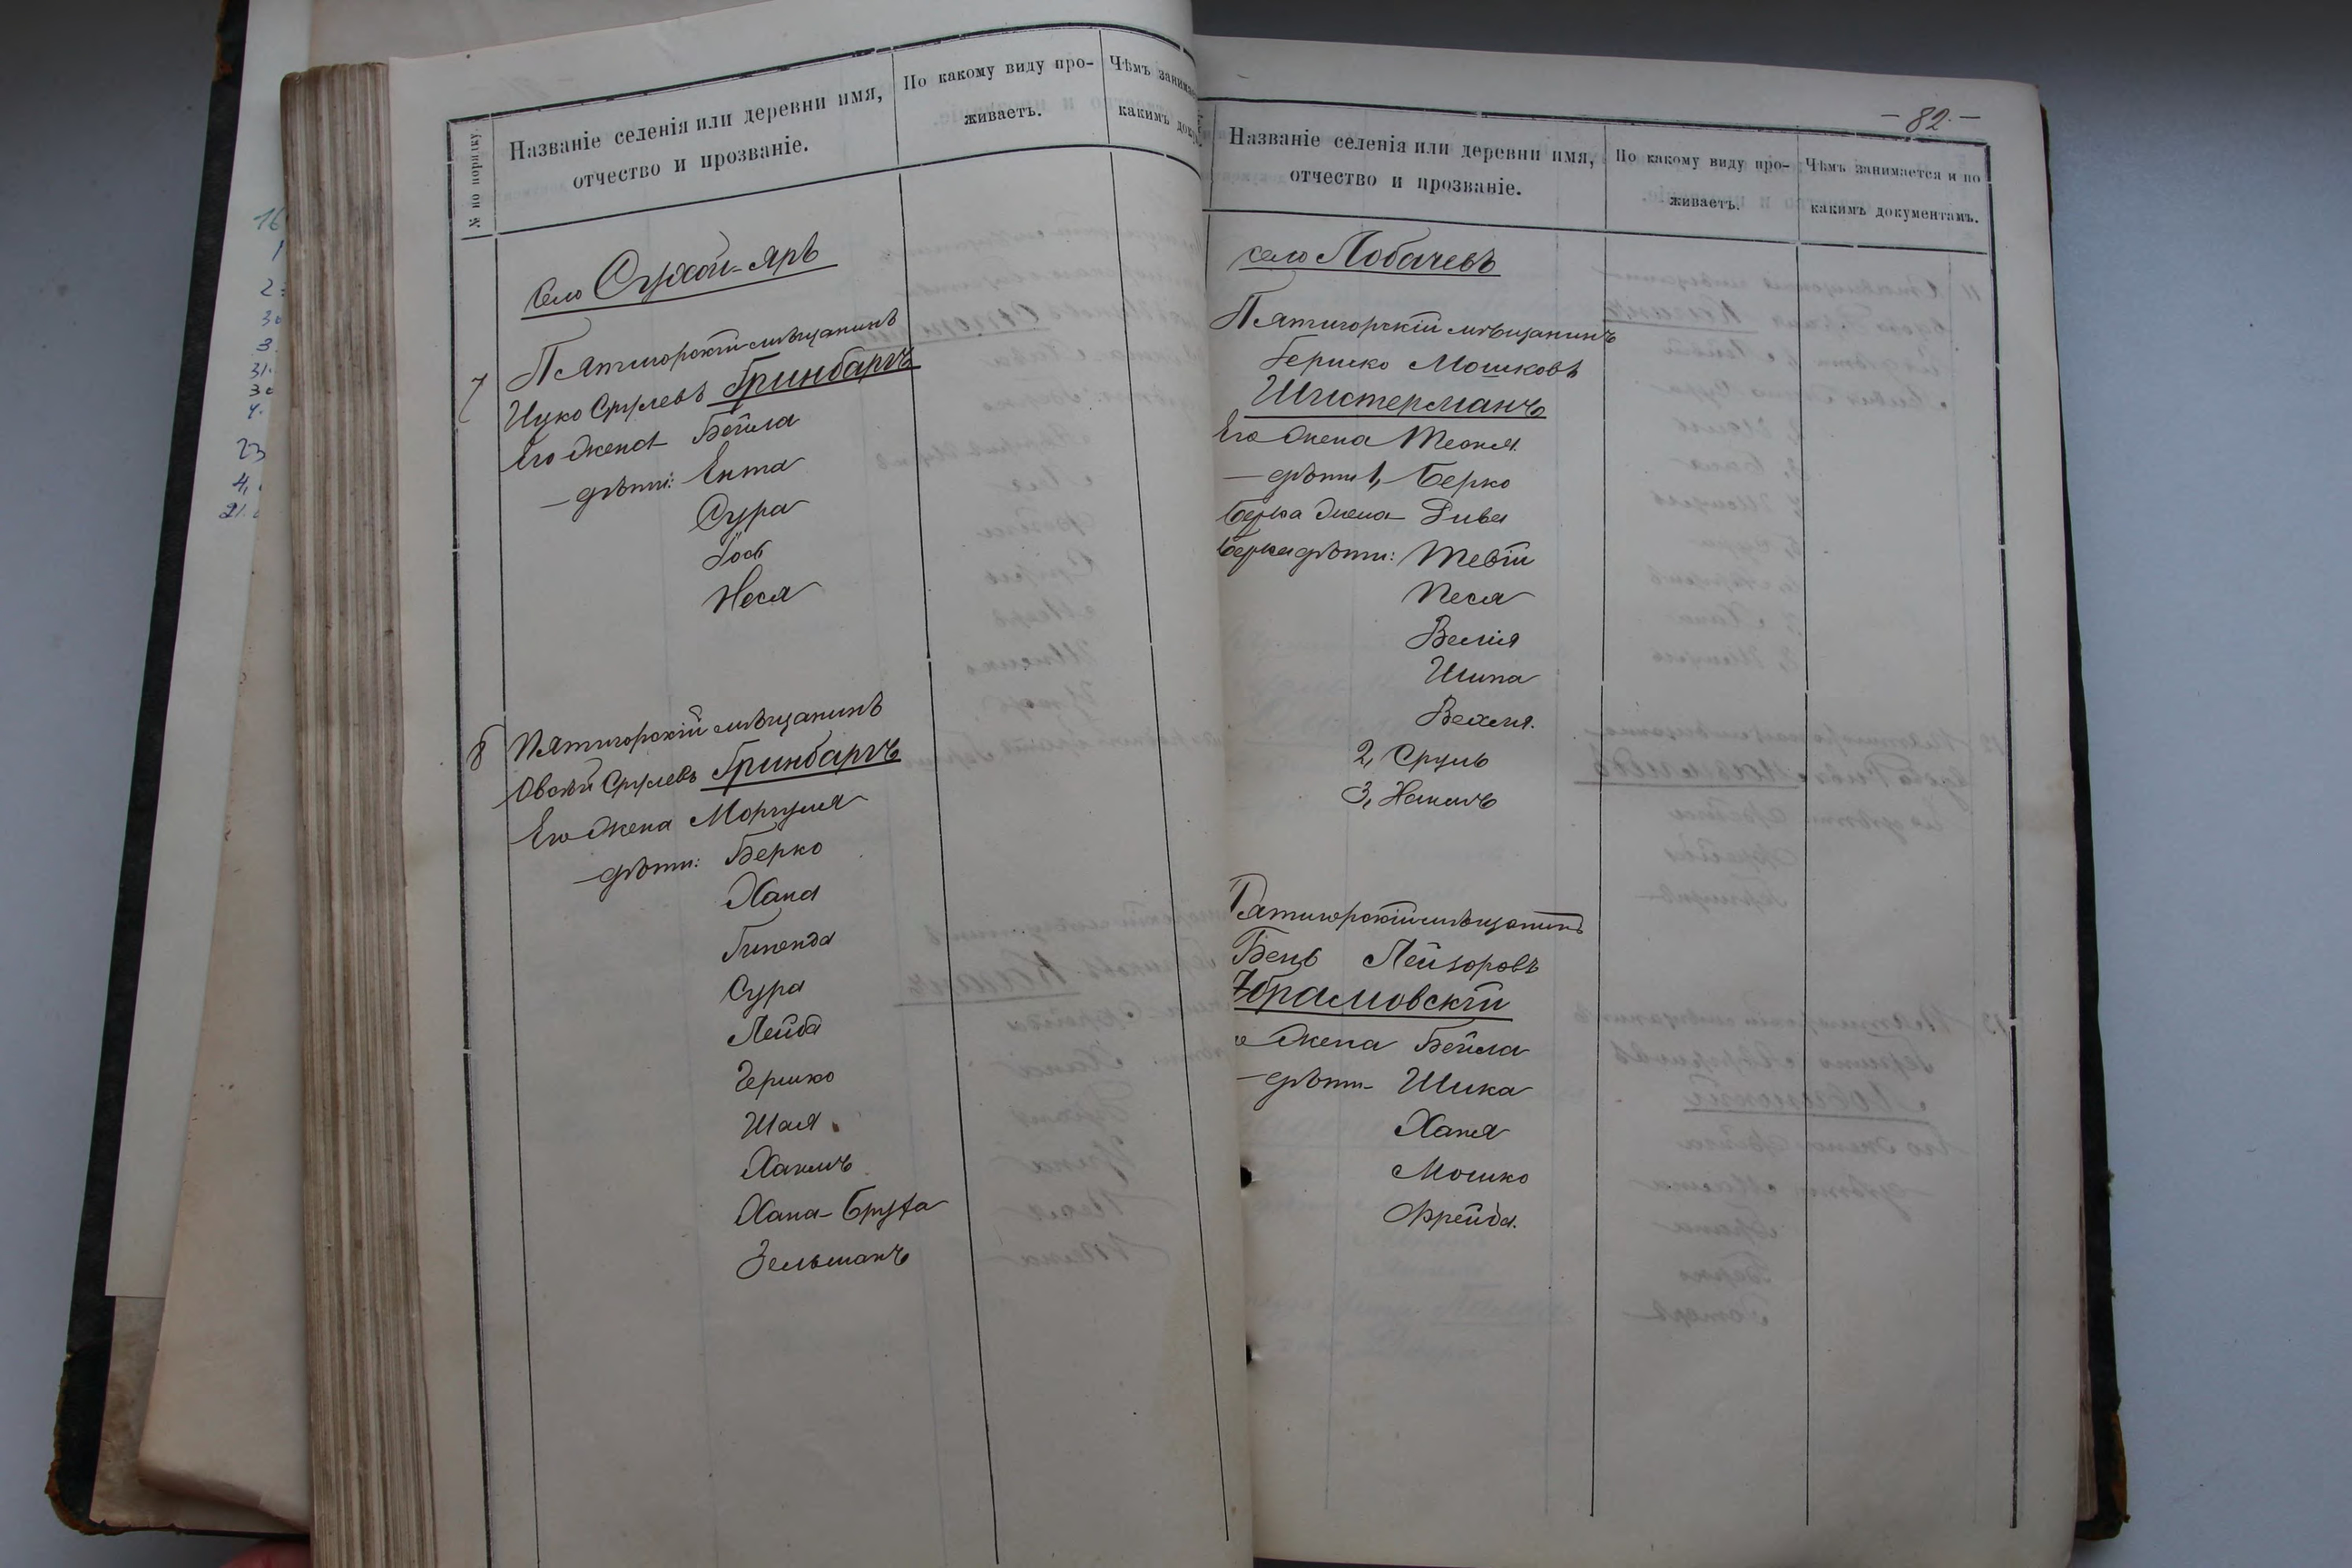 № по порядку.
Названіе селенія или деревни имя,
отчество и прозваніе.
По какому виду про-
живаетъ.
Чѣмъ занима
какимъ доку
село Сухой-Яръ
7 Пятигорскій мѣщанинъ
Ицко Срулевъ Гринбаргъ
Его жена Бейла
— дѣти: Ента
Сура
Іось
Неся
8 Пятигорскій мѣщанинъ
Овсѣй Срулевъ Гринбаргъ
Его жена Моргуля
— дѣти: Берко
Хана
Гиненда
Сура
Лейба
Гершко
Шая
Хаимъ
Хана-Бруха
Зельманъ
— 82. —
Названіе селенія или деревни имя,
отчество и прозваніе.
По какому виду про-
живаетъ.
Чѣмъ занимается и по
какимъ документамъ.
село Лобачевъ
Пятигорскій мѣщанинъ
Гершко Мошковъ
Шистерманъ
Его жена
— дѣти 1, Берко
Берка жена — Рива
Берка дѣти: Тевій
Песя
Велия
Шипа
2, Сруль
3, Нахимъ
Пятигорскій мѣщанинъ
Бень Лейзоровъ
Абрамовскій
жена Бейла
— дѣти — Шика
Ханя
Мошко
Фрейда.
16
1
2
30
3
31.
30
4.
23
4,
21.